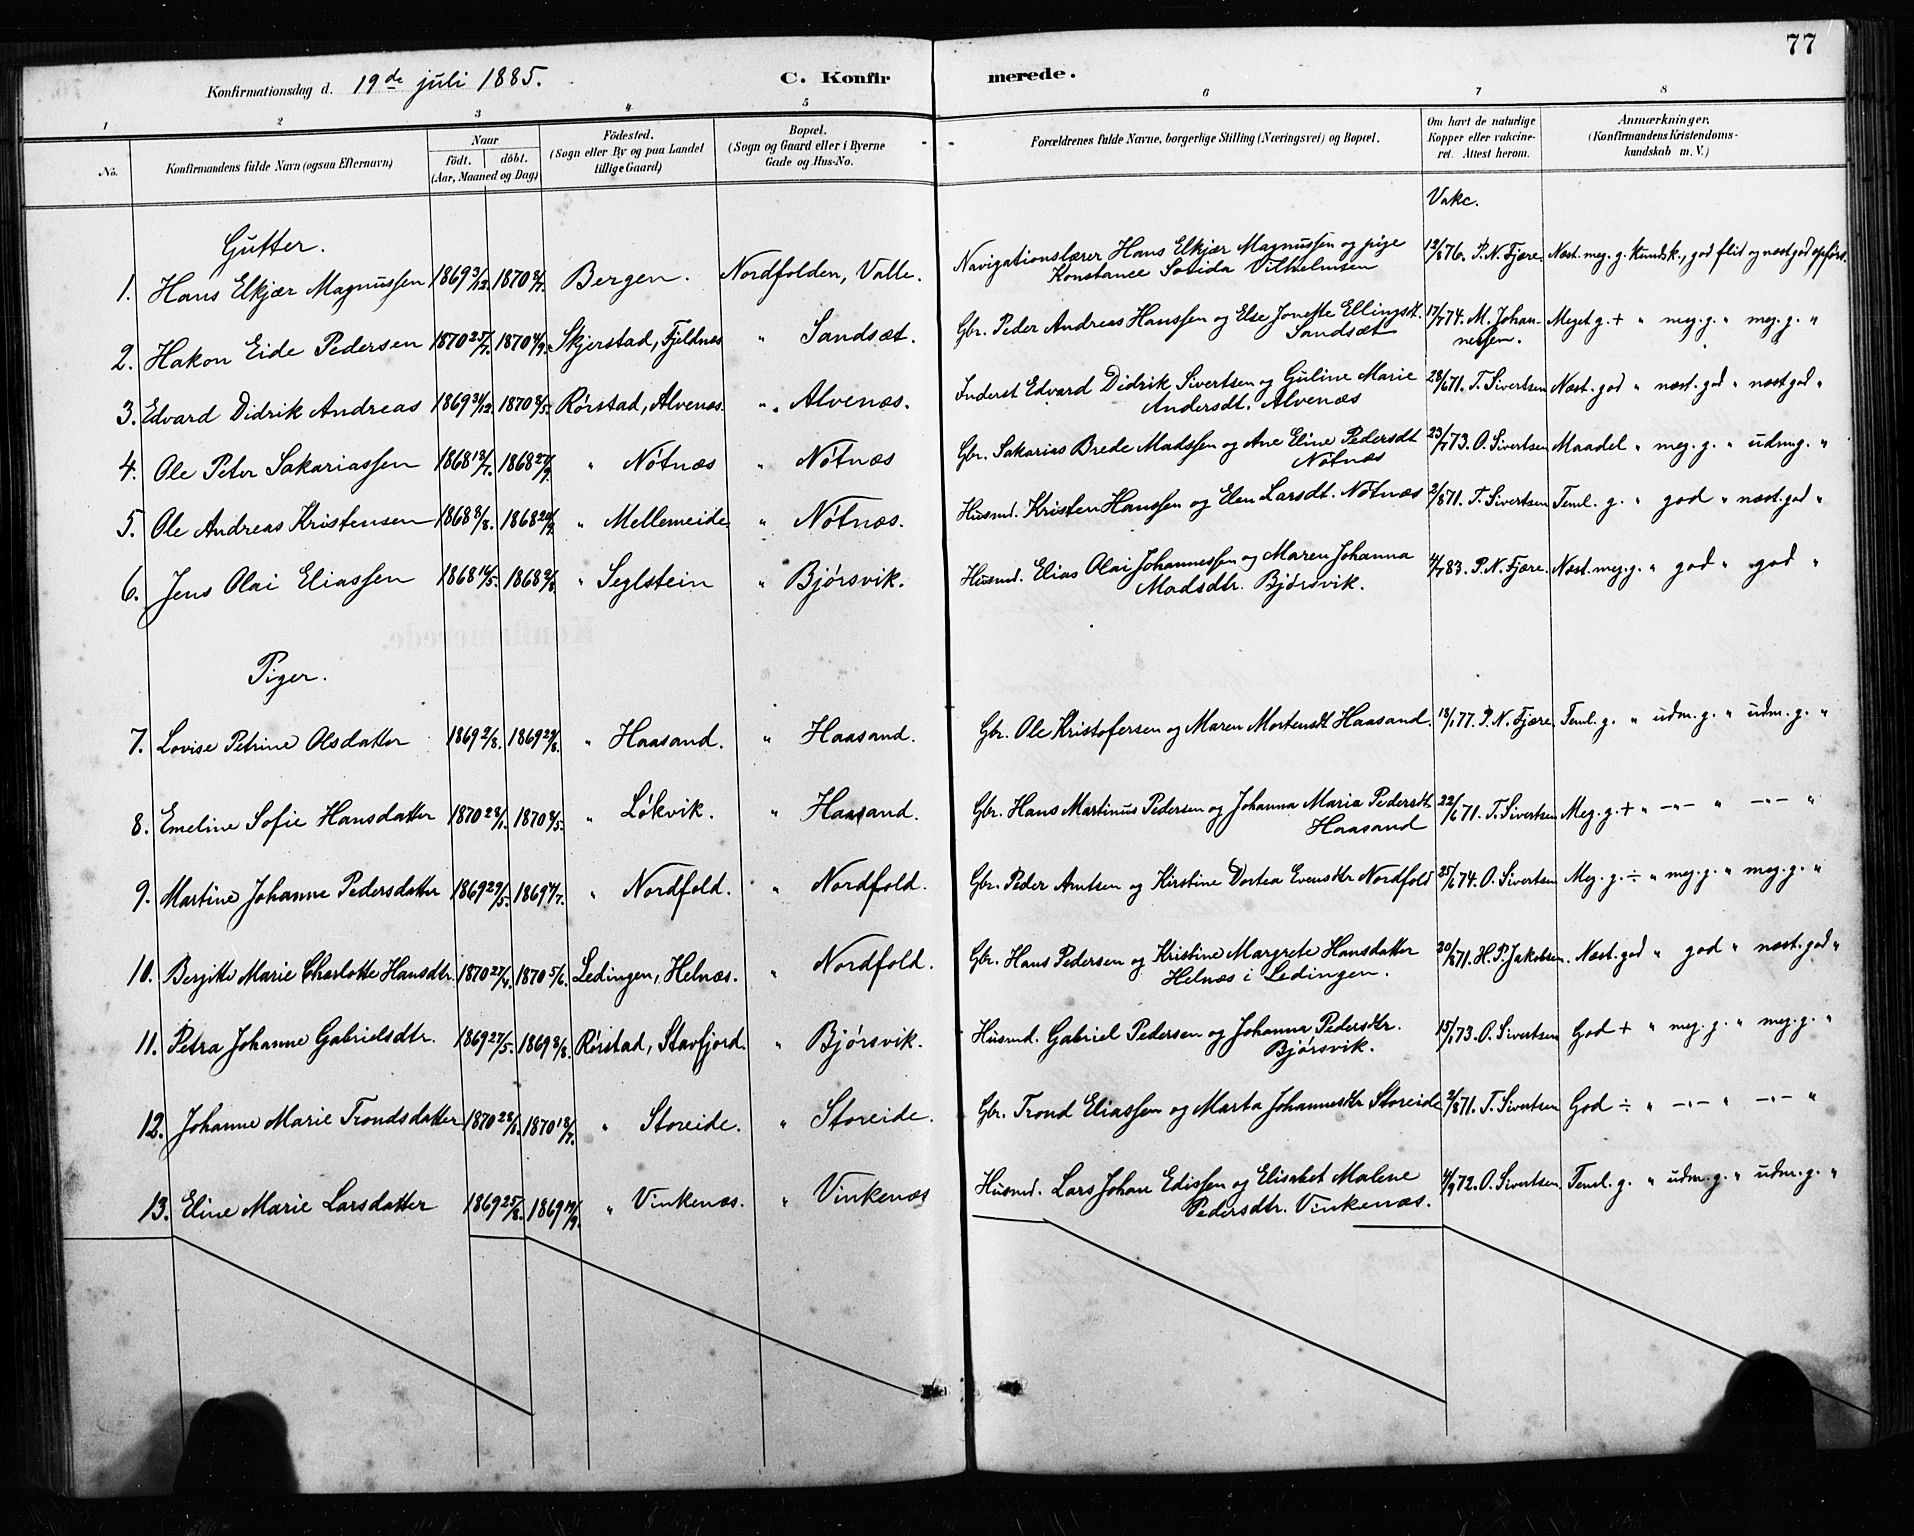 77
Konfirmationsdag d. 19de juli 1885. C. Konfirmerede.
1 2 3 4 5 6 7 8
No. Konfirmandens fulde Navn (ogsaa Efternavn) Naar födt. döbt. (Aar, Maaned og Dag) Födested. (Sogn eller By og paa Landet tillige Gaard) Bopæl. (Sogn og Gaard eller i Byerne Gade og Hus-No. Forældrenes fulde Navne, borgerlige Stilling (Næringsvei) og Bopæl. Om havt de naturlige Kopper eller vakcineret. Attest herom. Anmærkninger. (Konfirmandens Kristendomskundskab m. V.)
Vakc.
Gutter.
1. Hans Elkjær Magnussen 1869 3/12. 1870 Bergen. Nordfolden, Valle. Navigationslærer Hans Elkjær Magnussen og pige 12/876. P. N. Fjære. Næst. meg. g. kundsk., god flid og næst god opførs.
Konstance Vilhelmsen
2. Hakon Eide Pedersen 1870 1870 Skjerstad, Fjeldnes " Sandsæt. Gbr. Peder Andreas Hanssen og Else Jonette Ellingsdt. 17/774. M. Johan- Meget g. + " meg. g. " meg. g. "
Sandsæt nessen.
3. Edvard Didrik Andreas 1869 1870 Rørstad, Alvenæs. " Alvenæs. Inderst Edvard Didrik Sivertsen og Guline Marie 28/671. T. Sivertsen Næst. god " næst. god " næst god "
Andersdt. Alvenæs
4. Ole Peter Sakariassen 1868 13/7. 1868 27/9. " Nótnæs " Nótnæs Gbr. Sakarias Brede Madssen og Ane Eline Pedersdt 23/773. O. Sivertsen Maadel " meg. g. " udm. g. "
Nótnæs
5. Ole Andreas Kristensen 1868 1868 " Mellemeide " Nótnæs. Husmd. Kristen Hanssen og Elen Larsdt. Nótnæs 2/871. T. Sivertsen Teml. g. " god " næst. god "
6. Jens Olai Eliassen 1868 1868 " Seglstein " Bjórsvik. Husmd. Elias Olai Johannessen og Maren Johanna 4/783. P. N. Fjære. Næst. meg. g. " god " god "
Madsdtr. Bjórsvik.
Piger.
7. Lovise Petrine Olsdatter 1869 2/8. 1869 29/8. " Haasand. " Haasand. Gbr. Ole Kristofersen og Maren Mortensdt Haasand. 18/177. P. N. Fjære Teml. g. " udm. g. " udm. g. "
8. Emeline Sofie Hansdatter 1870 1870 " Lókvik. " Haasand. Gbr. Hans Martinus Pedersen og Johanna Maria Pedersdt 22/671. T. Sivertsen Meg. g. + " -"- " -"- "
Haasand
9. Martine Johanne Pedersdatter 1869 29/5. 1869 " Nordfold. " Nordfold. Gbr. Peder Arntsen og Kirstine Dortea Evensdtr Nordfold 25/674. O. Sivertsen Meg. g. ÷ " meg. g. " meg. g. "
10. Berjitte Marie Charlotte Hansdtr. 1870 27/4. 1870 5/6. Lødingen, Helnæs. " Nordfold. Gbr. Hans Pedersen og Kristine Margrete Hansdatter 20/871. H. P. Jakobsen. Næst. god " god " næst. god "
Helnæs i Lødingen.
11. Petra Johanne Gabrielsdtr. 1869 27/5. 1869 Rórstad, Stavfjord. " Bjórsvik. Husmd. Gabriel Pedersen og Johanna Pedersdtr. 15/173. O. Sivertsen God + " meg. g. " meg. g. "
Bjórsvik.
12. Johanne Marie Trondsdatter 1870 1870 18/7. " Storeide. " Storeide. Gbr. Trond Eliassen og Marta Johannesdtr Storeide 2/871. T. Sivertsen God ÷ " -"- " -"- "
13. Eline Marie Larsdatter 1869 25/8. 1869 19/9. " Vinkenæs. " Vinkenæs Husmd. Lars Johan Edissen og Elisabet Malene 4/972. O. Sivertsen. Teml. g. " udm. g. " udm. g. "
Pedersdtr. Vinkenæs.